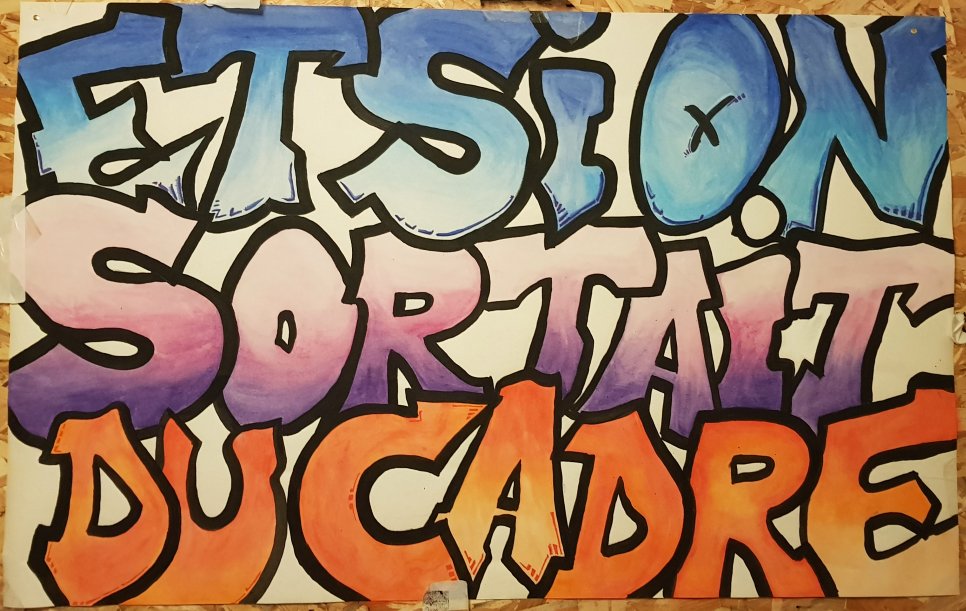 ET SiON
SORTAIT
DU CADRE